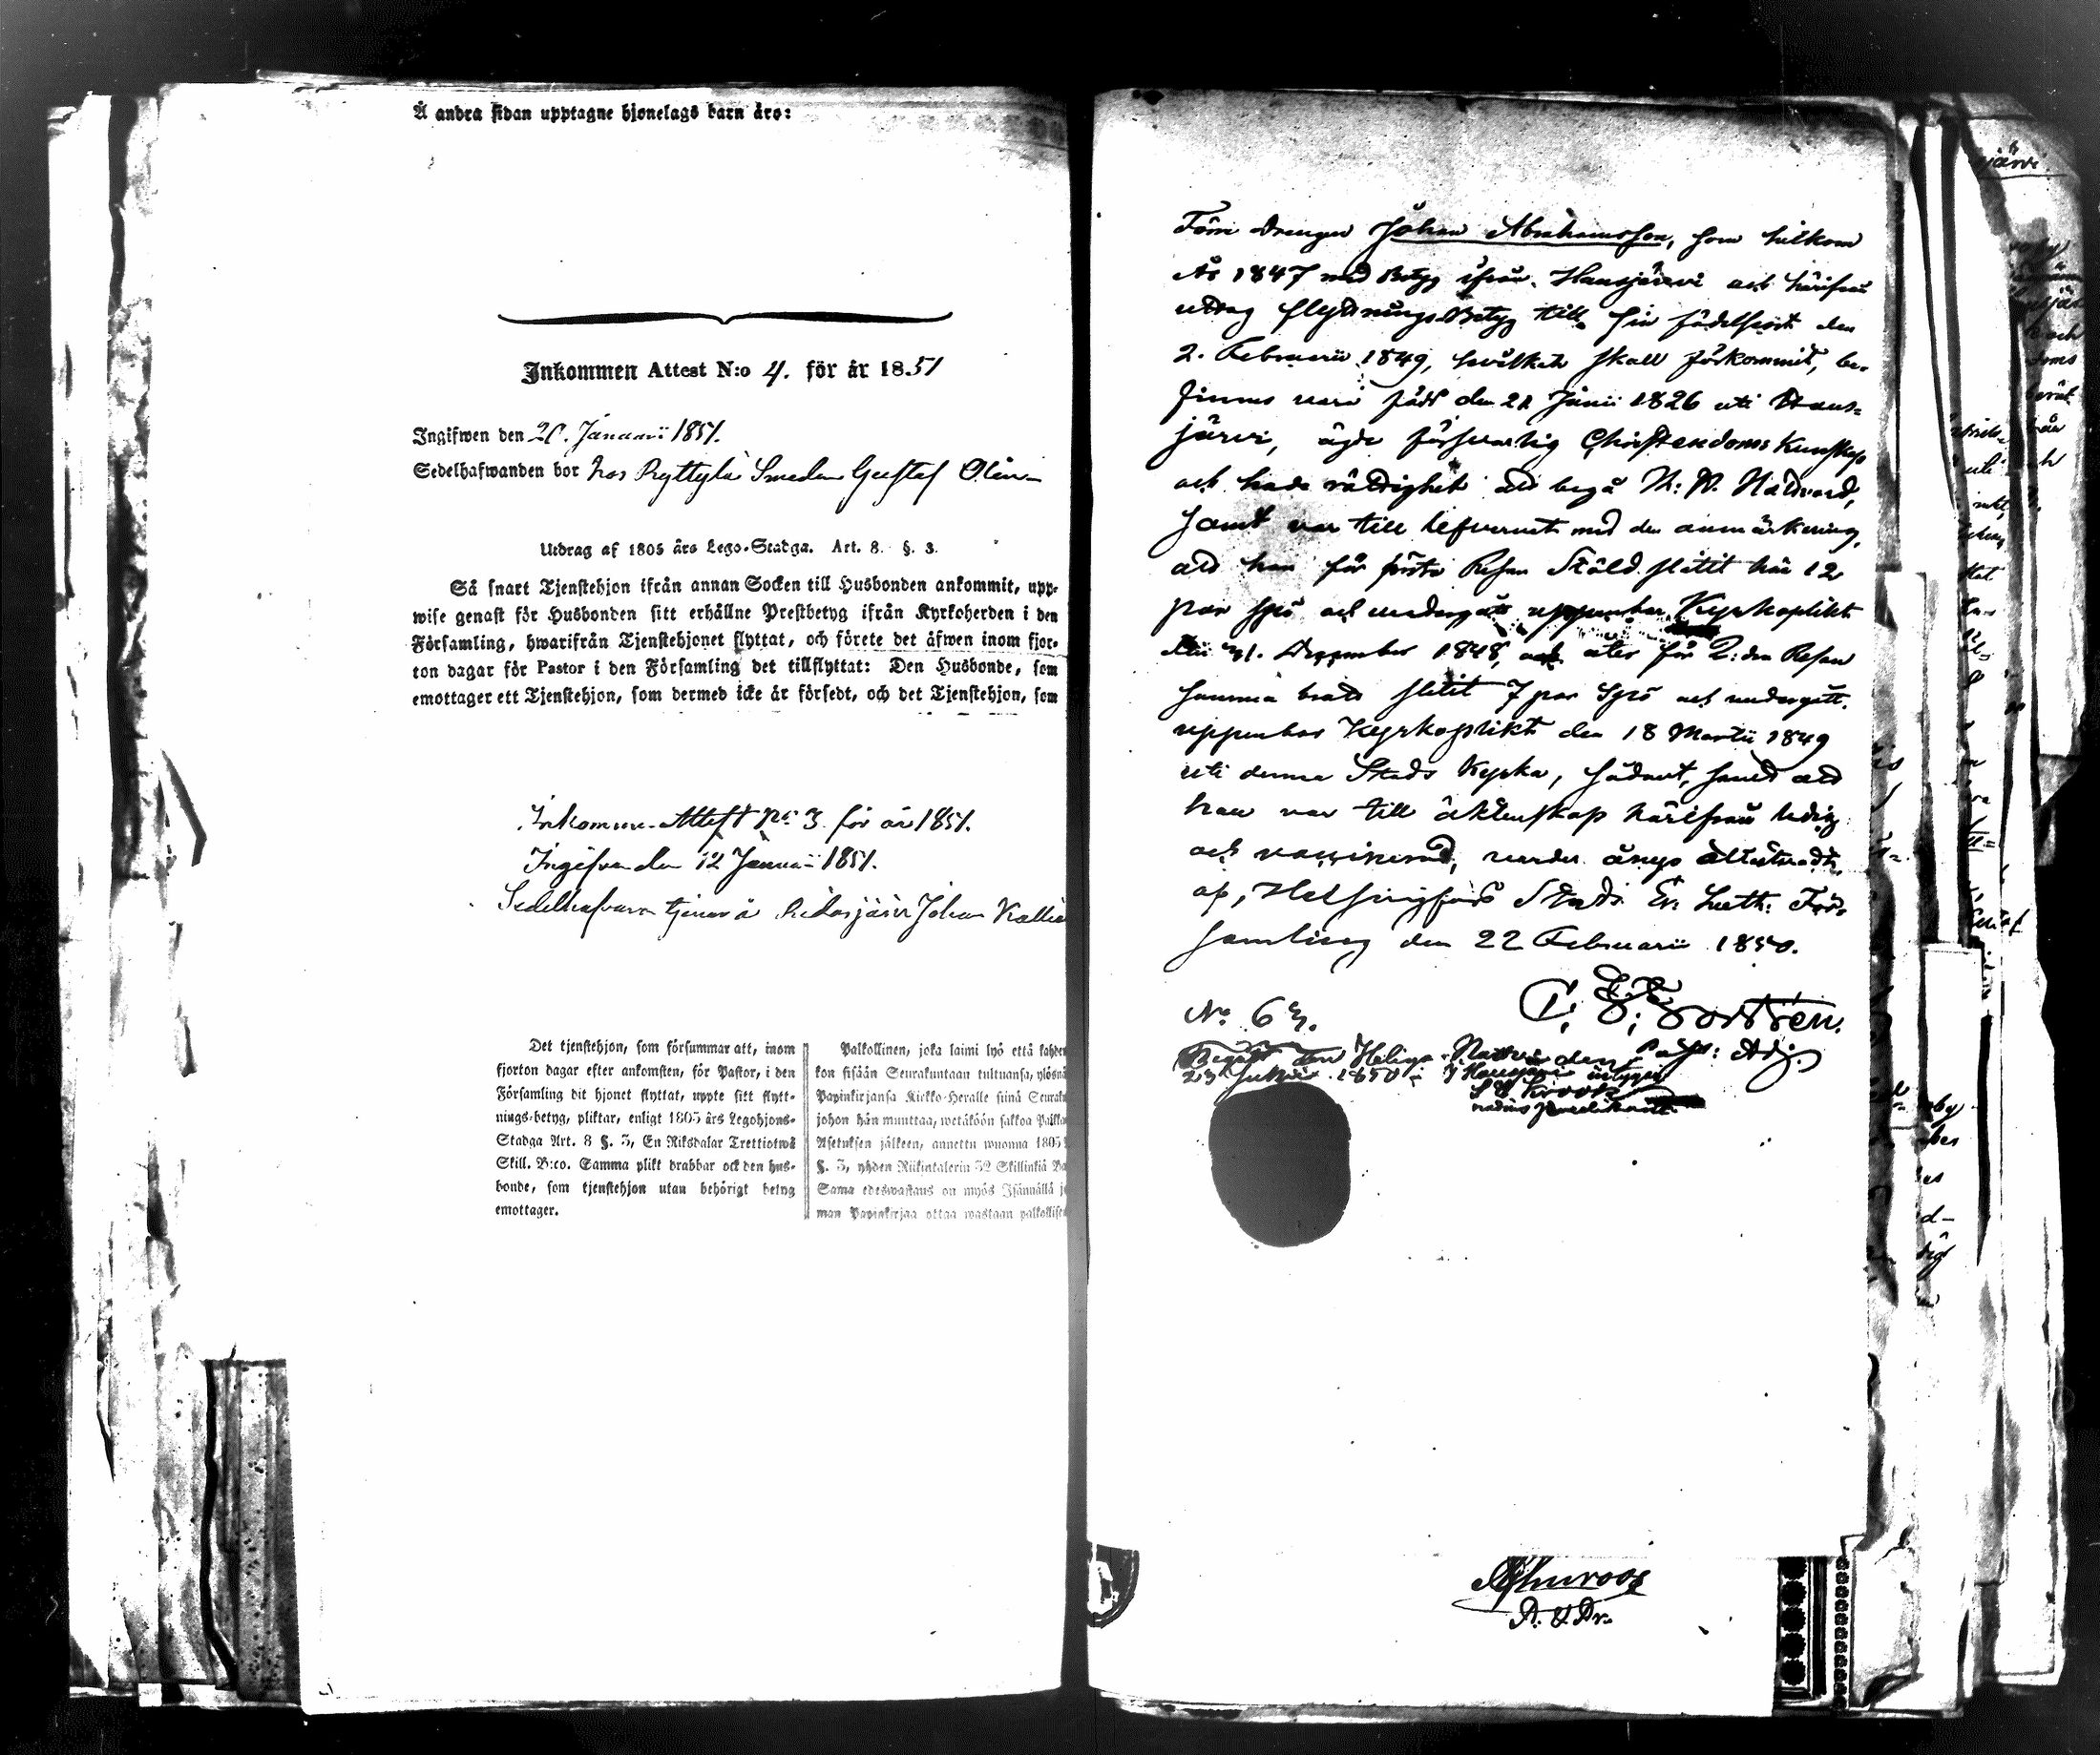 Å andra sidan upptagne hjonelags barn äro:
Inkommen Attest N:o 4. för år 1851
Ingifwen den 20. Januarii 1851.
Sedelhafwanden bor hos Ryttylä Smeden Gustaf Olin
Utdrag af 1805 års Lego-Stadga. Art. 8. §. 3.
Så snart Tjenstehjon ifrån annan Socken till Husbonden ankommit, upp-
wise genast för Husbonden sitt erhållne Prestbetyg ifrån Kyrkoherden i den
Församling, hwarifrån Tjenstehjonet flyttat, och förete det äfwen inom fjor-
ton dagar för Pastor i den Församling det tillflyttat: Den Husbonde, som
emottager ett Tjenstehjon, som dermed icke är försedt, och det Tjenstehjon, som
Inkommen Attest No 3 för år 1851.
Ingifven den 12 Januarii 1851.
Sedelhafvaren tjenar å Hidasjärvi Johan
Det tjenstehjon, som försummar att, inom
fjorton dagar efter ankomsten, för Pastor, i den
Församling dit hjonet flyttat, uppte sitt flytt-
nings-betyg, pliktar, enligt 1805 års Legohjons-
Stadga Art. 8 §. 3, En Riksdalar Trettiotwå
Skill. B:co. Samma plikt drabbar ock den hus-
bonde, som tjenstehjon utan behörigt betyg
emottager.
Palkollinen, joka laimi lyö että kahden
kon sisään Seurakuntaan tultuansa, ylösnä
Papinkirjansa Kirkko-Heralle siinä Seuraku
johon hän muuttaa, wetäköön sakkoa Palka
Asetuksen jälkeen, annettu wuonna 1805
§. 3, yhden Riikintalerin 32 Skillinkiä Ba
Sama edeswastaus on myös Isännällä j
man Papinkirjaa ottaa wastaan palkollis
Förre Drängen Johan Abrahamsson, som hitkom
År 1847 med Betyg ifrån Hausjärvi och härifrån
uttog flyttnings Betyg till sin födelseort den
2. Februarii 1849, hvilket skall förkommit, be-
finnes vara född den 21 Junii 1826 uti Haus-
järvi, ägde försvarlig Christendoms Kunskap
och hade rättighet att begå H: H. Nattvard,
samt var till lefvernet med den anmärkning,
att han för första Resan Stöld slitit här 12
par spö och undergått uppenbar Kyrkoplikt
den 31. December 1848, och åter för 2:dra Resan
samma brott slitit 7 par Spö och undergått
uppenbar Kyrkoplikt den 18 Martii 1849
uti denna Stads Kyrka, sådant, samt att
han var till äktenskap härifrån ledig
och vaccinerad, varder ånyo attesteradt,
af, Helsingfors Stads Ev. Luth: För-
samling den 22 Februarii 1850.
No 63.
Begått den Heliga Nattvarden
23 Junii 1850 i Hausjärvi intygar
S W Krook
nådårs Predikant
Past: Adj.